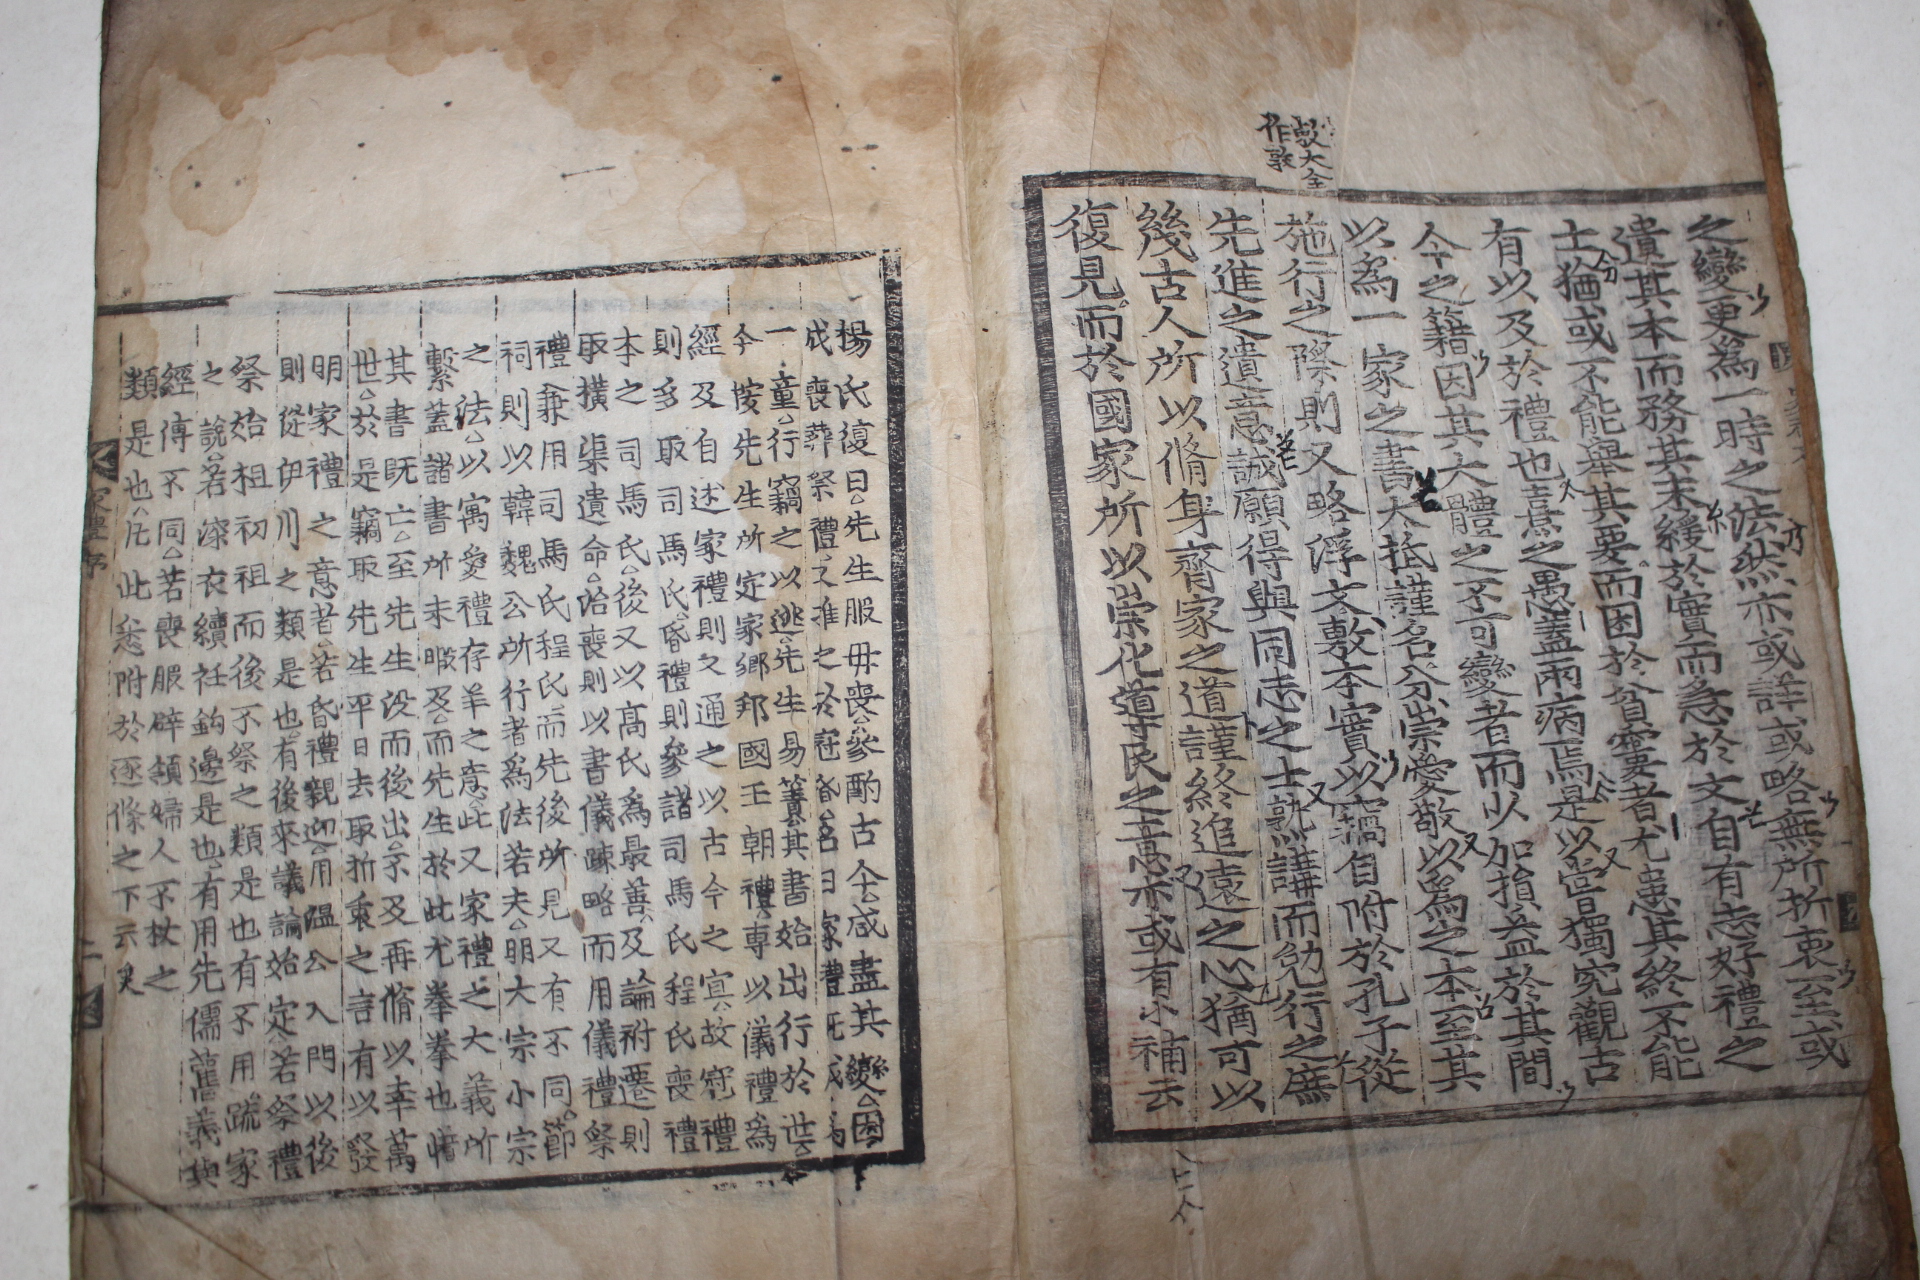 敷大全
作敦
之變更爲一時之法然亦或詳或略無所折衷至或
遺其本而務其末緩於實而急於文自有志好禮之
士猶或不能擧其要而困於貧窶者尤患其終不能
有以及於禮也熹之愚蓋兩病焉是以嘗獨究觀古
今之籍因其大體之不可變者而少加損益於其間
以爲一家之書大抵謹名分崇愛敬以爲之本至其
施行之際則又略浮文敷本實以竊自附於孔子從
先進之遺意誠願得與同志之士熟講而勉行之庶
幾古人所以脩身齊家之道謹終追遠之心猶可以
復見而於國家所以崇化導民之意亦或有小補云
楊氏復曰先生服母喪參酌古今咸盡其變因
成喪葬祭禮又推之於冠昏名曰家禮旣成爲
一童行竊之以逃先生易簀其書始出行於世
今按先生所定家鄕邦國王朝禮專以儀禮爲
經及自述家禮則又通之以古今之宜故冠禮
則多取司馬氏昏禮則參諸司馬氏程氏喪禮
本之司馬氏後又以高氏爲最善及論祔遷則
取橫渠遺命治喪則以書儀疎略而用儀禮祭
禮兼用司馬氏程氏而先後所見又有不同節
祠則以韓魏公所行者爲法若夫明大宗小宗
之法以寓愛禮存羊之意此又家禮之大義所
繫蓋諸書所未暇及而先生於此尤拳拳也惜
其書旣亡至先生沒而後出不及再脩以幸萬
世於是竊取先生平日去取折衷之言有以發
明家禮之意者若昏禮親迎用溫公入門以後
則從伊川之類是也有後來議論始定若祭禮
祭始祖初祖而後不祭之類是也有不用疏家
之說若深衣續衽鉤邊是也有用先儒舊義與
經傳不同若喪服辟領婦人不杖之
類是也凡此悉附於逐條之下云矣
家禮序